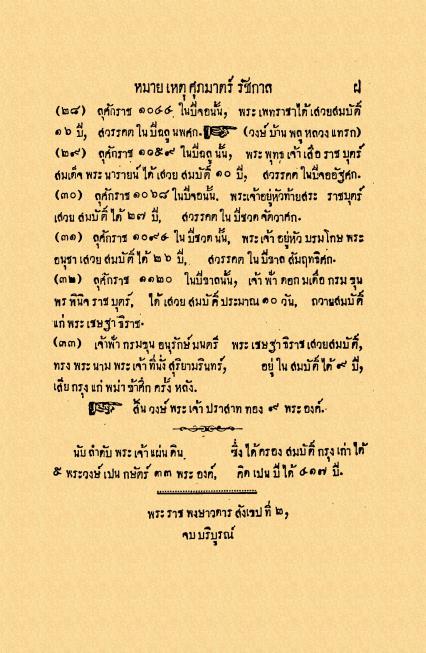 หมาย เหตุ ศุภมาตร์ รัชกาล ฝ
(๒๘) ฤศักราช ๑๐๔๔ ในปีจอนั้น, พระ เพทราชาได้ เสวยสมบัติ์
๑๖ ปี, สวรรคต ใน ปีฉลู นพศก. (วงษ์ บ้าน พลู หลวง แทรก)
(๒๙) ฤศักราช ๑๐๕๙ ในปีฉลู นั้น, พระ พุทธ เจ้า เสือ ราช บุตร์
สมเด็จ พระ นารายน์ ได้ เสวย สมบัติ์ ๑๐ ปี, สวรรคต ในปีจออัฐศก.
(๓๐) ฤศักราช ๑๐๖๘ ในปีจอนั้น. พระเจ้าอยู่หัวท้ายสระ ราชบุตร์
เสวย สมบัติ์ ได้ ๒๗ ปี, สวรรคต ใน ปีชวด จัตวาศก.
(๓๑) ฤศักราช ๑๐๙๔ ใน ปีชวด นั้น, พระ เจ้า อยู่หัว บรมโกษ พระ
อนุชา เสวย สมบัติ์ ได้ ๒๖ ปี, สวรรคต ใน ปีขาล สัมฤทธิศก.
(๓๒) ฤศักราช ๑๑๒๐ ในปีขาลนั้น, เจ้า ฟ้า ดอก มเดื่อ กรม ขุน
พร พินิจ ราช บุตร์, ได้ เสวย สมบัติ์ ประมาณ ๑๐ วัน, ถวายสมบัติ์
แก่ พระ เชษฐา ธิราช.
(๓๓) เจ้าฟ้า กรมขุน อนุรักษ์ มนตรี พระ เชษฐา ธิราช เสวยสมบัติ์,
ทรง พระ นาม พระ เจ้า ที่นั่ง สุริยามรินทร์, อยู่ ใน สมบัติ์ ได้ ๙ ปี,
เสีย กรุง แก่ พม่า ข้าศึก ครั้ง หลัง.
สิ้น วงษ์ พระ เจ้า ปราสาท ทอง ๙ พระ องค์.
นับ ลำดับ พระ เจ้า แผ่น ดิน ซึ่ง ได้ ครอง สมบัติ์ กรุง เก่า ได้
๕ พระวงษ์ เปน กษัตร์ ๓๓ พระ องค์, คิด เปน ปี ได้ ๔๑๗ ปี.
พระ ราช พงษาวดาร สังเขป ที่ ๒,
จบ บริบูรณ์